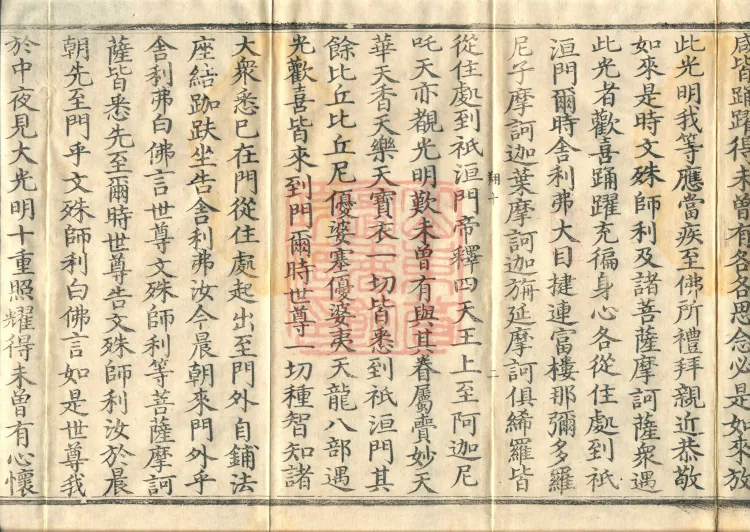 咸皆踊躍得未曾有各各思念必是如來放
此光明我等應當疾至佛所禮拜親近恭敬
如來是時文殊師利及諸菩薩摩訶薩衆遇
此光者歡喜踊躍充徧身心各從住處到祇
洹門爾時舍利弗大目揵連富樓那彌多羅
尼子摩訶迦葉摩訶迦旃延摩訶俱絺羅皆
從住處到祇洹門帝釋四天王上至阿迦尼
翔十
二
吒天亦覩光明歎未曾有與其眷屬賷妙天
華天香天樂天寶衣一切皆悉到祇洹門其
餘比丘比丘尼優婆塞優婆夷天龍八部遇
光歡喜皆來到門爾時世尊一切種智知諸
大衆悉已在門從住處起出至門外自鋪法
座結跏趺坐告舍利弗汝今晨朝來門外乎
舍利弗白佛言世尊文殊師利等菩薩摩訶
薩皆悉先至爾時世尊告文殊師利汝於晨
朝先至門乎文殊師利白佛言如是世尊我
於中夜見大光明十重照耀得未曾有心懷